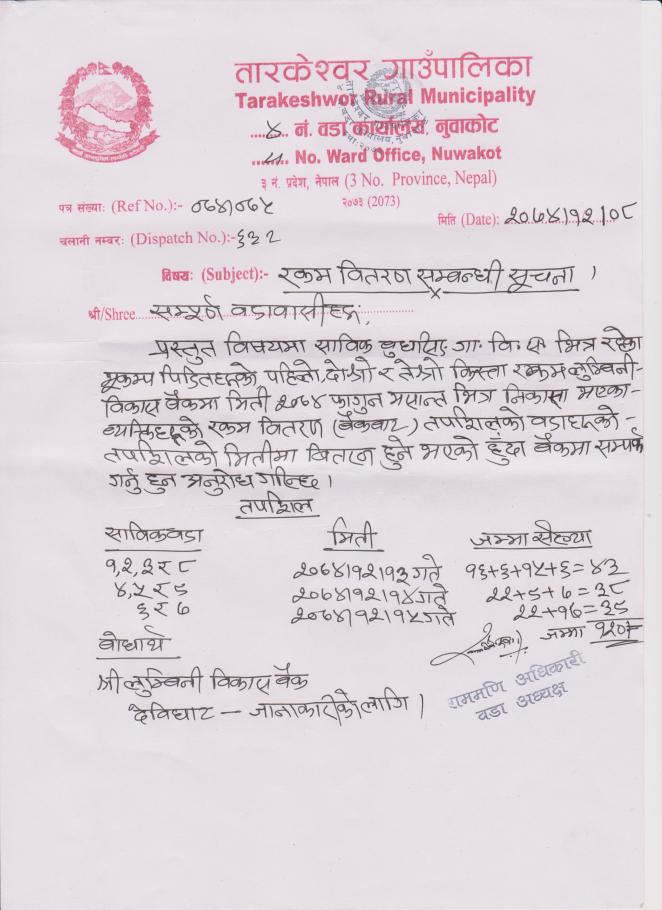 तारकेश्वर गाउँपालिका
Tarakeshwor Rural Municipality
४ नं. वडा कार्यालय, नुवाकोट
No. Ward Office, Nuwakot
३ नं. प्रदेश, नेपाल (3 No. Province, Nepal)
२०७३ (2073)
पत्र संख्याः (Ref No.):- ०७४।०७५
मिति (Date): २०७४।१२।०८
चलानी नम्बरः (Dispatch No.):-६३२
विषयः (Subject):- रकम वितरण सम्बन्धी सूचना ।
श्री/Shree सम्पूर्ण वडावासीहरु,
प्रस्तुत विषयमा साविक बुधसिं गा. वि. स भित्र रहेका
भूकम्प पिडितहरुको पहिलो, दोश्रो र तेश्रो किस्ता रकम लुम्बिनी-
विकास बैंकमा मिती २०७४ फागुन मसान्त भित्र निकासा भएका-
व्यक्तिहरुको रकम वितरण (बैंकबाट) तपशिलको वडाहरुको-
तपशिलको मितीमा वितरण हुने भएको हुँदा बैंकमा सम्पर्क
गर्नु हुन अनुरोध गरिन्छ ।
तपशिल
साविक वडा मिती जम्मा संख्या
१,२,३ र ८ २०७४।१२।१३ गते १६+६+१५+६= ४३
४,५ र ९ २०७४।१२।१४ गते २२+९+७ =३८
६ र ७ २०७४।१२।१५ गते २२+१७=३९
जम्मा १२०
बोधार्थ
श्री लुम्बिनी विकास बैंक
देविघाट — जानाकारीको लागि ।
राममणि अधिकारी
वडा अध्यक्ष